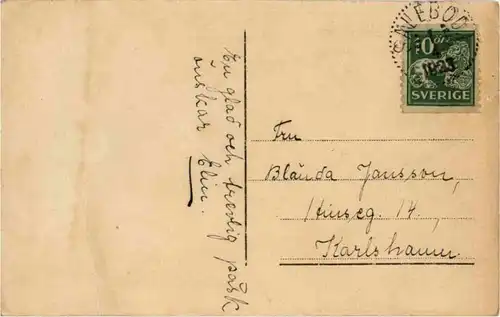 En glad och trevlig påsk
önskar Elin.
SVERIGE
1923
Fru
Blända Jansson,
14,
Karlshamn.